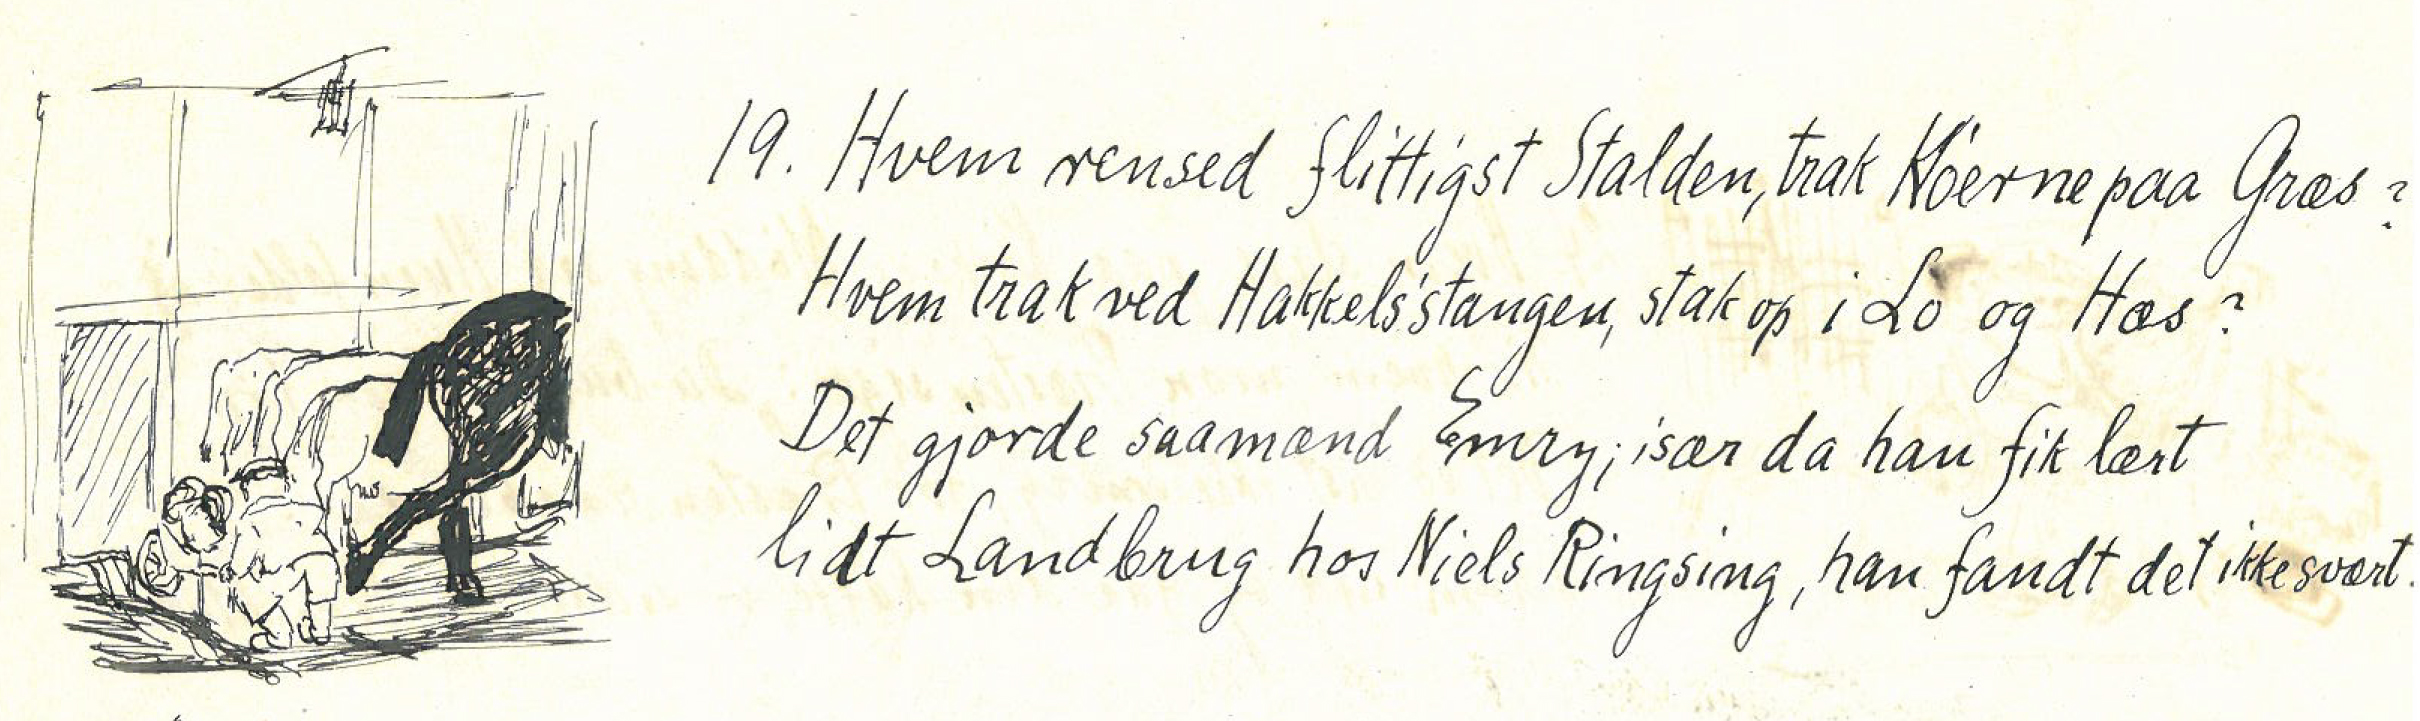 19. Hvem rensed flittigst Stalden, trak Köerne paa Græs?
Hvem trak ved Hakkels'stangen, stak op i Lo og Hæs?
Det gjorde saamænd Emry; især da han fik lært
lidt Landbrug hos Niels Ringsing, han fandt det ikke svært.